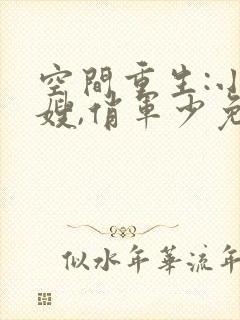 空間重生:小
嫂,俏軍少免
似水年華流年